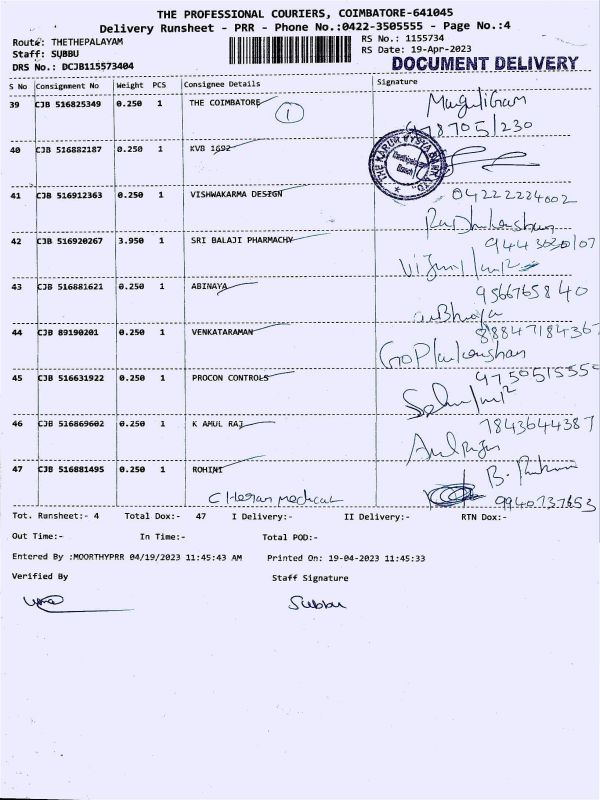 THE PROFESSIONAL COURIERS, COIMBATORE-641045
Delivery Runsheet - PRR - Phone No.:0422-3505555 - Page No.:4
Route: THETHEPALAYAM
RS No.: 1155734
Staff: SUBBU
RS Date: 19-Apr-2023
DRS No.: DCJB115573404
DOCUMENT DELIVERY
S No Consignment No Weight PCS Consignee Details Signature
39 CJB 516825349 0.250 1 THE COIMBATORE
1
40 CJB 516882187 0.250 1 KVB 1692
41 CJB 516912363 0.250 1 VISHWAKARMA DESIGN
04222224002
42 CJB 516920267 3.950 1 SRI BALAJI PHARMACHY
43 CJB 516881621 0.250 1 ABINAYA
9566765840
44 CJB 89190201 0.250 1 VENKATARAMAN
45 CJB 516631922 0.250 1 PROCON CONTROLS
46 CJB 516869602 0.250 1 K AMUL RAJ
7843644387
47 CJB 516881495 0.250 1 ROHINI
medical
9940737653
Tot. Runsheet:- 4 Total Dox:- 47 I Delivery:- II Delivery:- RTN Dox:-
Out Time:- In Time:- Total POD:-
Entered By :MOORTHYPRR 04/19/2023 11:45:43 AM Printed On: 19-04-2023 11:45:33
Verified By Staff Signature
Subbu